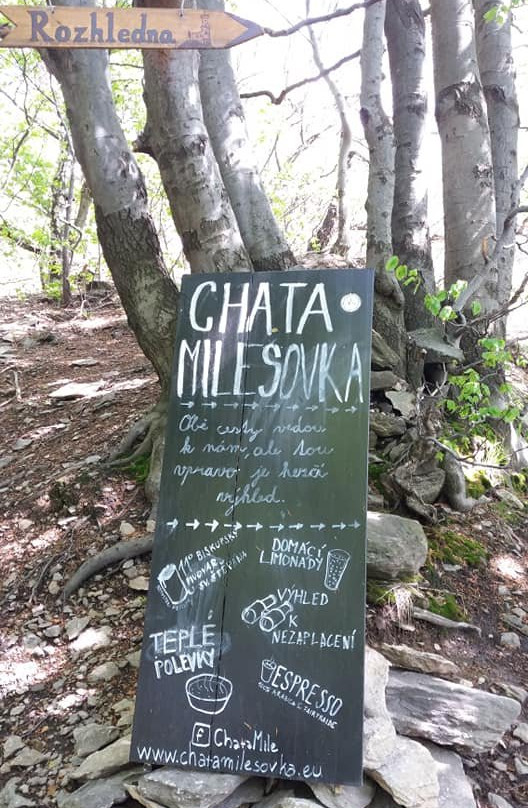 Rozhledna
CHATA
MILEŠOVKA
Obě cesty vedou
k nám, ale tou
vpravo je hezčí
výhled.
11° BISKUPSKÝ
PIVOVAR
SV. ŠTĚPÁNA
DOMÁCÍ
LIMONÁDY
VÝHLED
K
NEZAPLACENÍ
TEPLÉ
POLÉVKY
ESPRESSO
100% ARABICA
ChataMile
www.chatamilesovka.eu